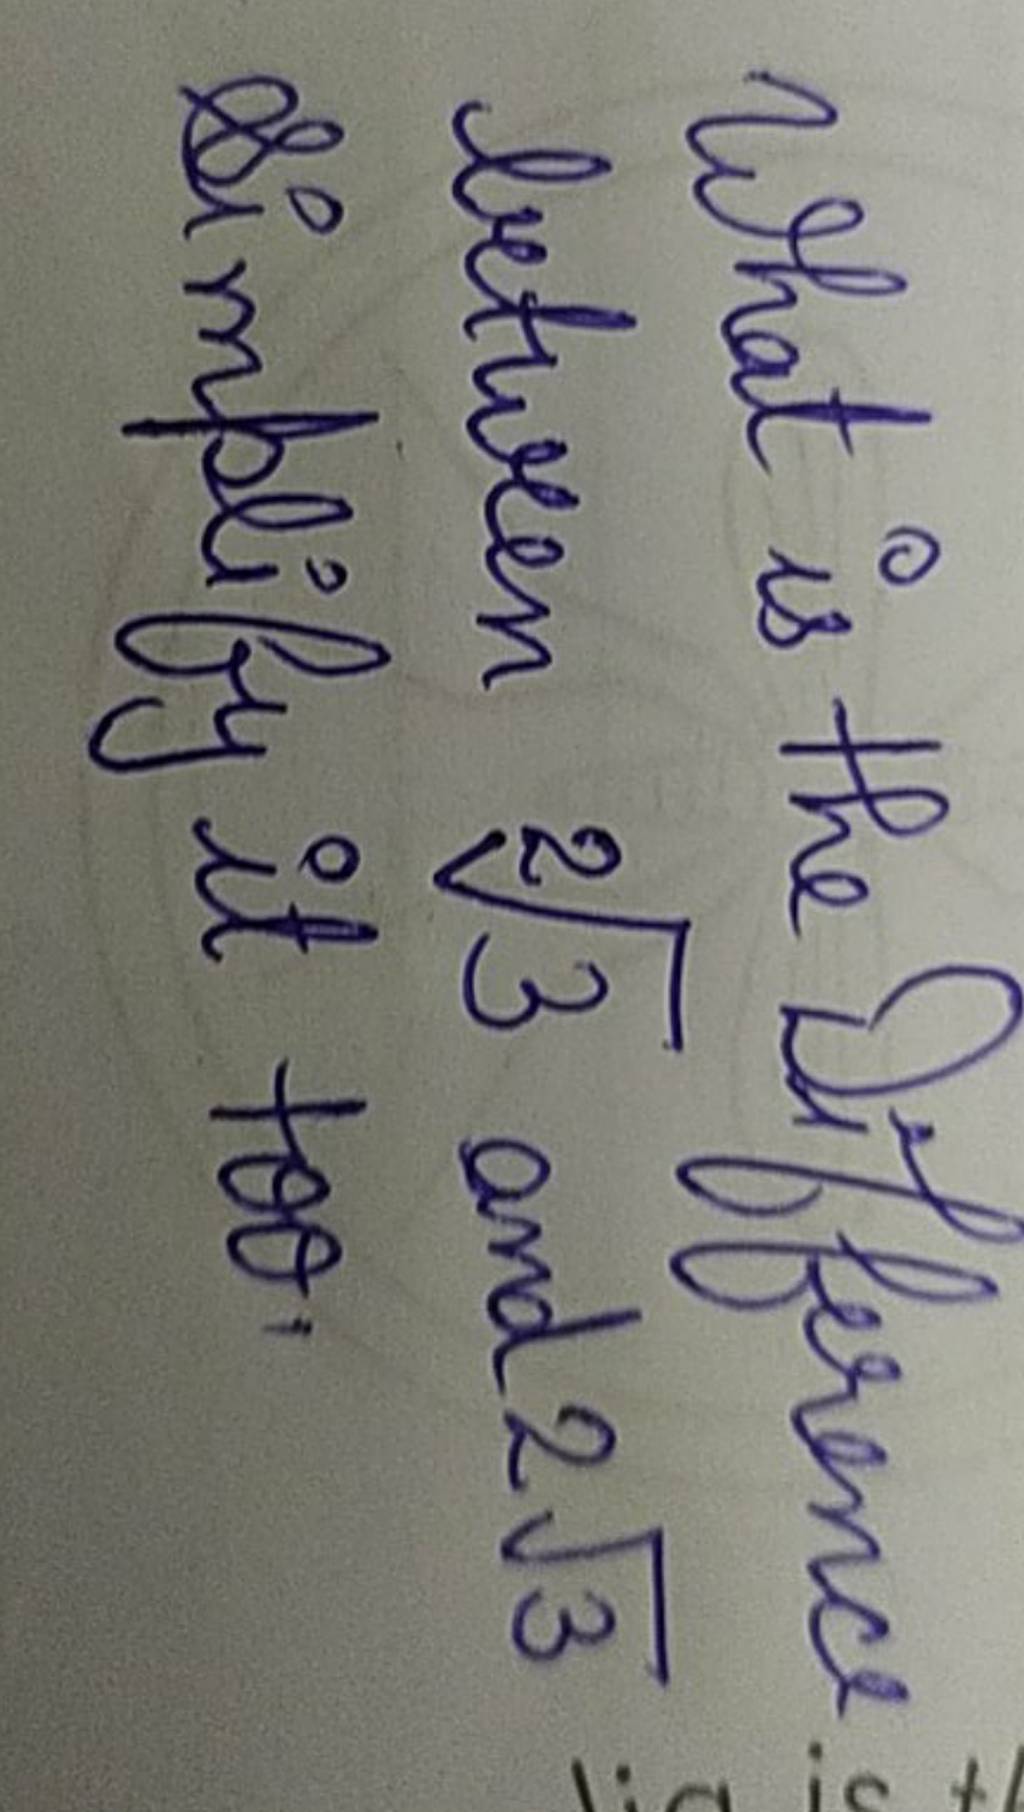 What is the Difference
between ²√3 and 2√3
Simplify it too.